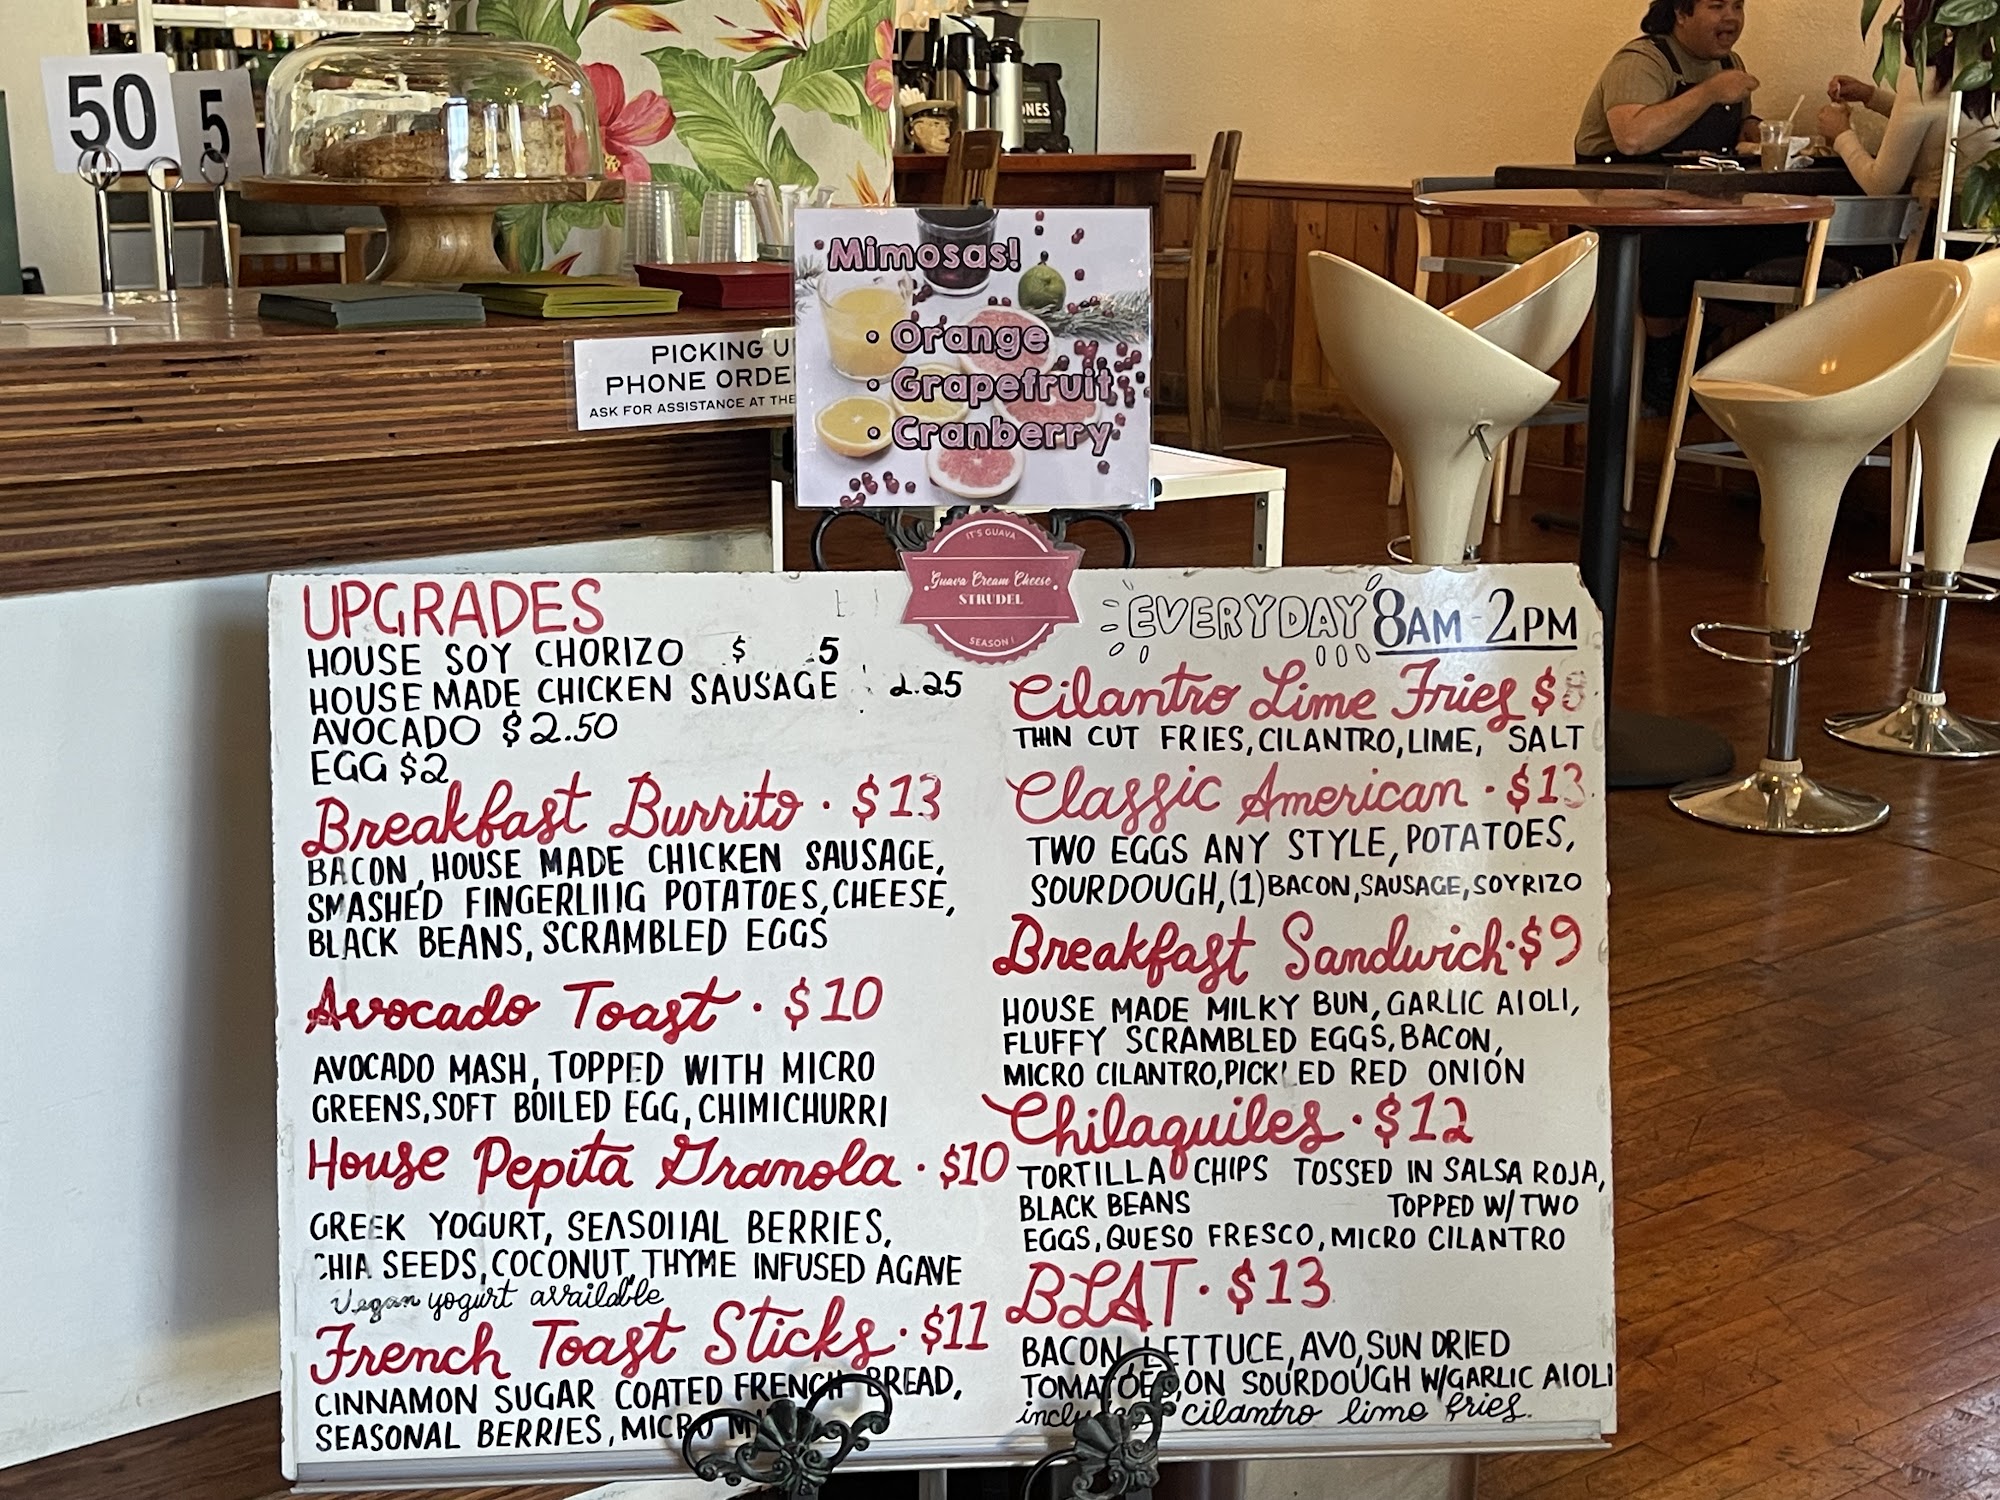 50
5
NES
PICKING
PHONE
ASK FOR ASSISTANCE AT THE
Mimosas!
• Orange
• Grapefruit
• Cranberry
IT'S GUAVA
Guava Cream Cheese
STRUDEL
SEASON!
UPGRADES
HOUSE SOY CHORIZO $ 5
HOUSE MADE CHICKEN SAUSAGE 2.25
AVOCADO $2.50
EGG $2
Breakfast Burrito · $13
BACON, HOUSE MADE CHICKEN SAUSAGE,
SMASHED FINGERLING POTATOES, CHEESE,
BLACK BEANS, SCRAMBLED EGGS
Avocado Toast · $10
AVOCADO MASH, TOPPED WITH MICRO
GREENS, SOFT BOILED EGG, CHIMICHURRI
House Pepita Granola · $10
GREEK YOGURT, SEASONAL BERRIES,
CHIA SEEDS, COCONUT, THYME INFUSED AGAVE
Vegan yogurt available
French Toast Sticks · $11
CINNAMON SUGAR COATED FRENCH BREAD,
SEASONAL BERRIES, MICRO
EVERYDAY 8AM-2PM
Cilantro Lime Fries $8
THIN CUT FRIES, CILANTRO, LIME, SALT
Classic American · $13
TWO EGGS ANY STYLE, POTATOES,
SOURDOUGH, (1) BACON, SAUSAGE, SOYRIZO
Breakfast Sandwich · $9
HOUSE MADE MILKY BUN, GARLIC AIOLI,
FLUFFY SCRAMBLED EGGS, BACON,
MICRO CILANTRO, PICKLED RED ONION
Chilaquiles · $12
TORTILLA CHIPS TOSSED IN SALSA ROJA,
BLACK BEANS TOPPED W/ TWO
EGGS, QUESO FRESCO, MICRO CILANTRO
BLAT · $13
BACON, LETTUCE, AVO, SUN DRIED
TOMATOES, ON SOURDOUGH W/GARLIC AIOLI
includes cilantro lime fries.